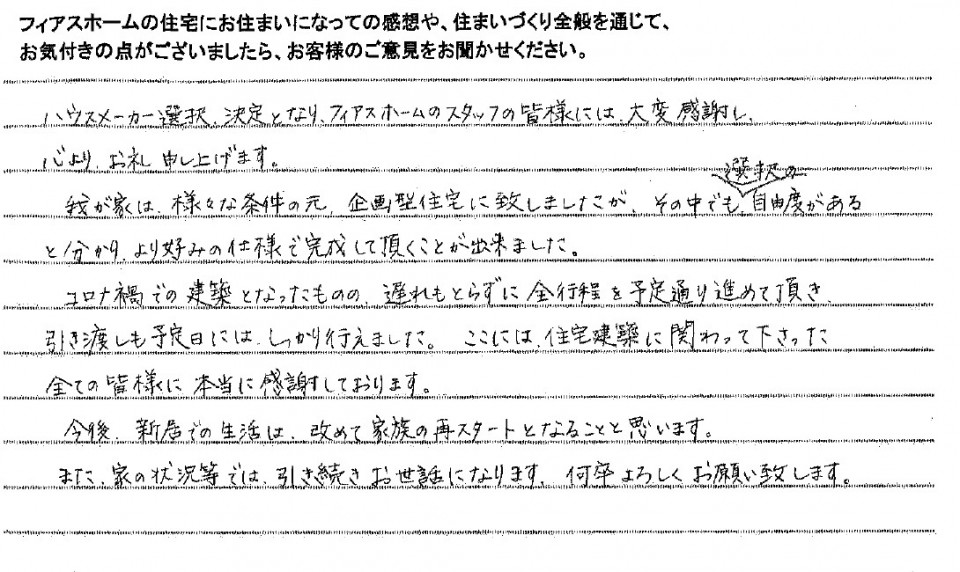 フィアスホームの住宅にお住まいになっての感想や、住まいづくり全般を通じて、
お気付きの点がございましたら、お客様のご意見をお聞かせください。
ハウスメーカー選択、決定となり、フィアスホームのスタッフの皆様には、大変感謝し、
心より、お礼申し上げます。
選択の
我が家は、様々な条件の元、企画型住宅に致しましたが、その中でも、自由度がある
と分かり、より好みの仕様で完成して頂くことが出来ました。
コロナ禍での建築となったものの、遅れもとらずに全行程を予定通り進めて頂き、
引き渡しも予定日には、しっかり行えました。ここには、住宅建築に関わって下さった
全ての皆様に本当に感謝しております。
今後、新居での生活は、改めて家族の再スタートとなることと思います。
また、家の状況等では、引き続きお世話になります。何卒よろしくお願い致します。